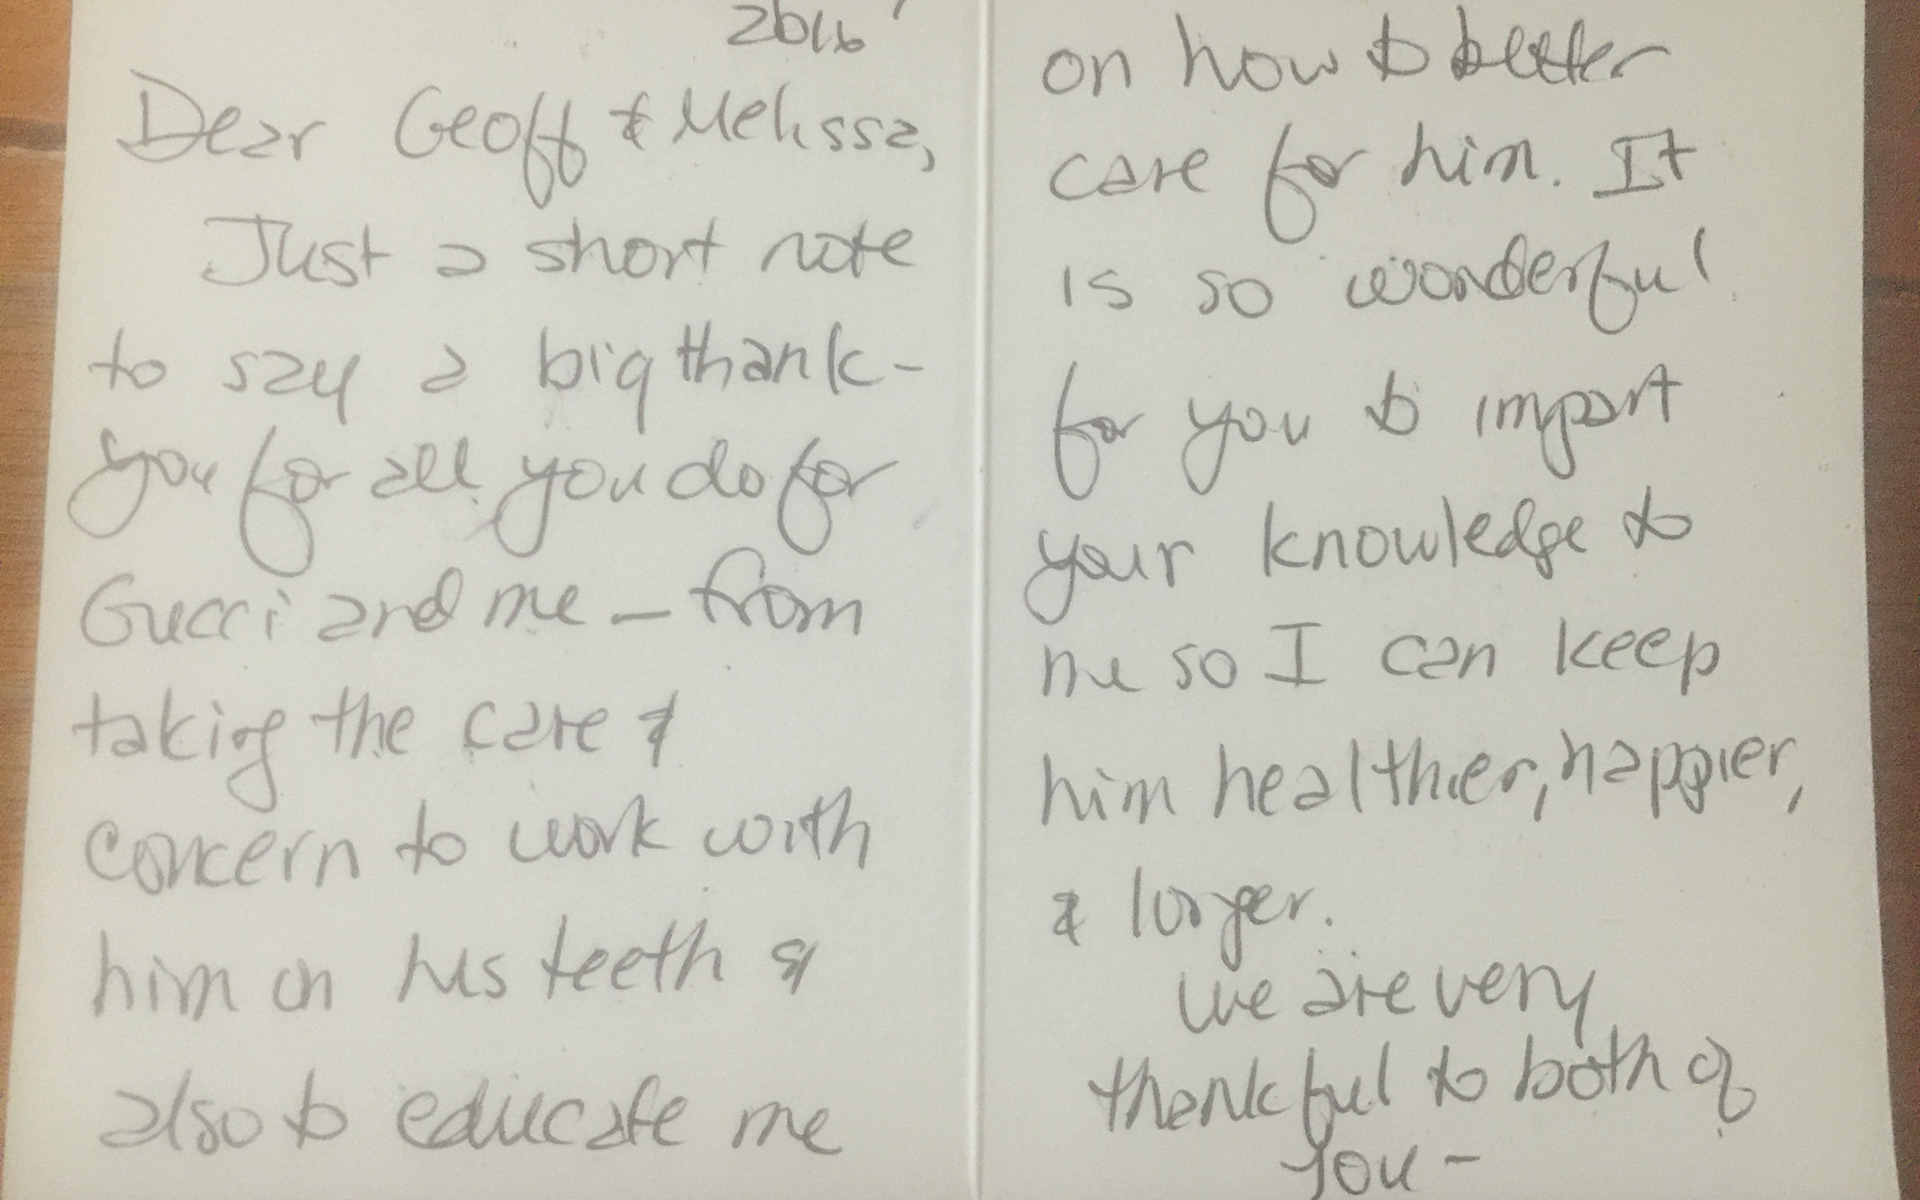 2016
Dear Geoff & Melissa,
Just a short note
to say a big thank-
you for all you do for
Gucci and me — from
taking the care &
concern to work with
him on his teeth &
also to educate me
on how to better
care for him. It
is so wonderful
for you to impart
your knowledge to
me so I can keep
him healthier, happier,
& longer.
We are very
thankful to both of
you -